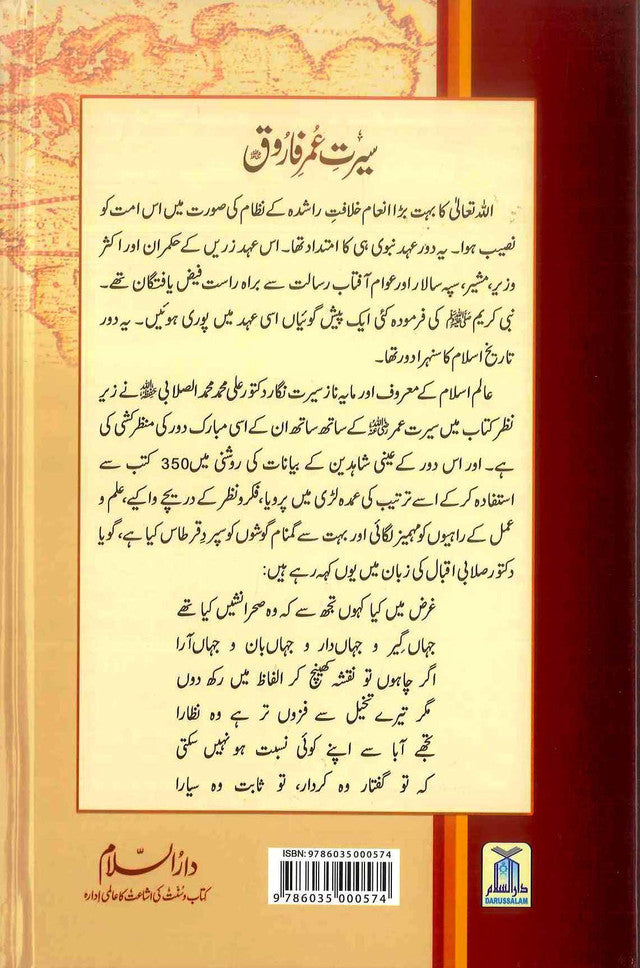 سیرتِ عمر فاروقؓ
اللہ تعالیٰ کا بہت بڑا انعام خلافتِ راشدہ کے نظام کی صورت میں اس امت کو
نصیب ہوا۔ یہ دور عہد نبوی ہی کا امتداد تھا۔ اس عہد زریں کے حکمران اور اکثر
وزیر، مشیر، سپہ سالار اور عوام آفتاب رسالت سے براہ راست فیض یافتگان تھے۔
نبی کریم ﷺ کی فرمودہ کئی ایک پیش گوئیاں اسی عہد میں پوری ہوئیں۔ یہ دور
تاریخ اسلام کا سنہرا دور تھا۔
عالم اسلام کے معروف اور مایہ ناز سیرت نگار دکتور علی محمد محمد الصلابی حفظہ اللہ نے زیرِ
نظر کتاب میں سیرت عمر رضی اللہ عنہ کے ساتھ ساتھ ان کے اسی مبارک دور کی منظر کشی کی
ہے۔ اور اس دور کے عینی شاہدین کے بیانات کی روشنی میں 350 کتب سے
استفادہ کر کے اسے ترتیب کی عمدہ لڑی میں پرویا، فکر و نظر کے دریچے وا کیے، علم و
عمل کے راہیوں کو مہمیز لگائی اور بہت سے گمنام گوشوں کو سپردِ قرطاس کیا ہے، گویا
دکتور صلابی اقبال کی زبان میں یوں کہہ رہے ہیں:
غرض میں کیا کہوں تجھ سے کہ وہ صحرا نشیں کیا تھے
جہاں گیر و جہاں دار و جہاں بان و جہاں آرا
اگر چاہوں تو نقشہ کھینچ کر الفاظ میں رکھ دوں
مگر تیرے تخیل سے فزوں تر ہے وہ نظارا
تجھے آبا سے اپنے کوئی نسبت ہو نہیں سکتی
کہ تو گفتار وہ کردار، تو ثابت وہ سیارا
دارالسلام
کتاب و سنت کی اشاعت کا عالمی ادارہ
ISBN: 9786035000574
9 786035 000574
دارالسلام
DARUSSALAM